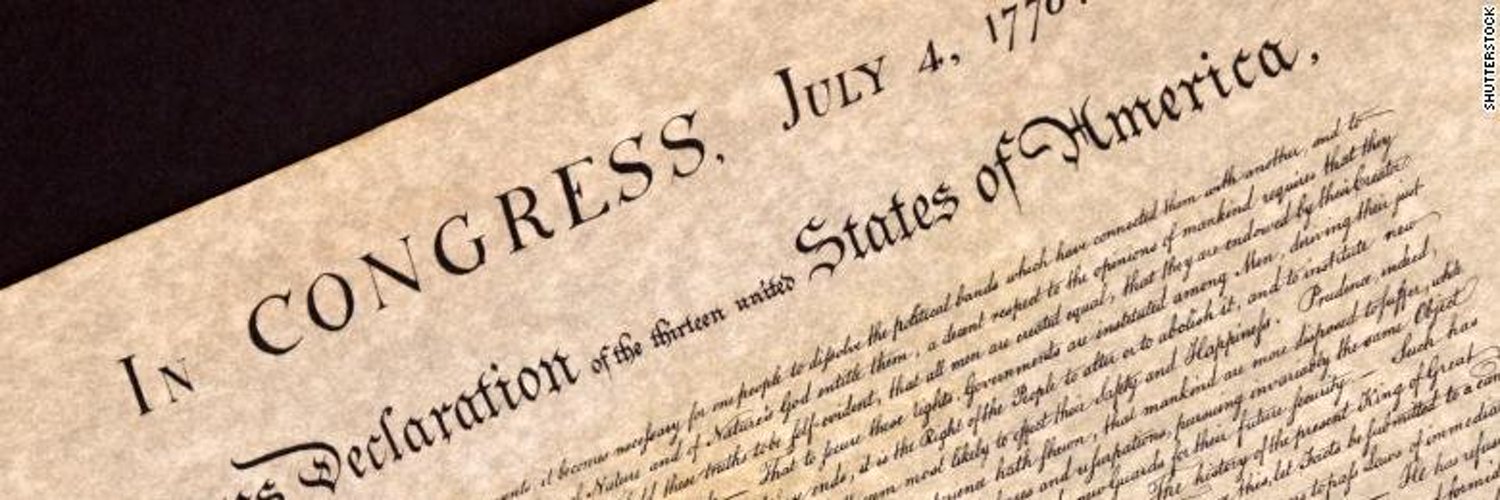 In CONGRESS, July 4, 1776.
Declaration of the thirteen united States of America,
it becomes necessary for one people to dissolve the political bands which have connected them with another, and to
Nature and of Nature's God entitle them, a decent respect to the opinions of mankind requires that they
these truths to be self-evident, that all men are created equal, that they are endowed by their Creator
That to secure these rights, Governments are instituted among Men, deriving their just
ends, it is the Right of the People to alter or to abolish it, and to institute new
most likely to effect their Safety and Happiness. Prudence, indeed,
hath shewn, that mankind are more disposed to suffer, while
and usurpations, pursuing invariably the same Object
new Guards for their future security. Such has
The history of the present King of Great
this, let Facts be submitted to a
to pass Laws of
He has
SHUTTERSTOCK